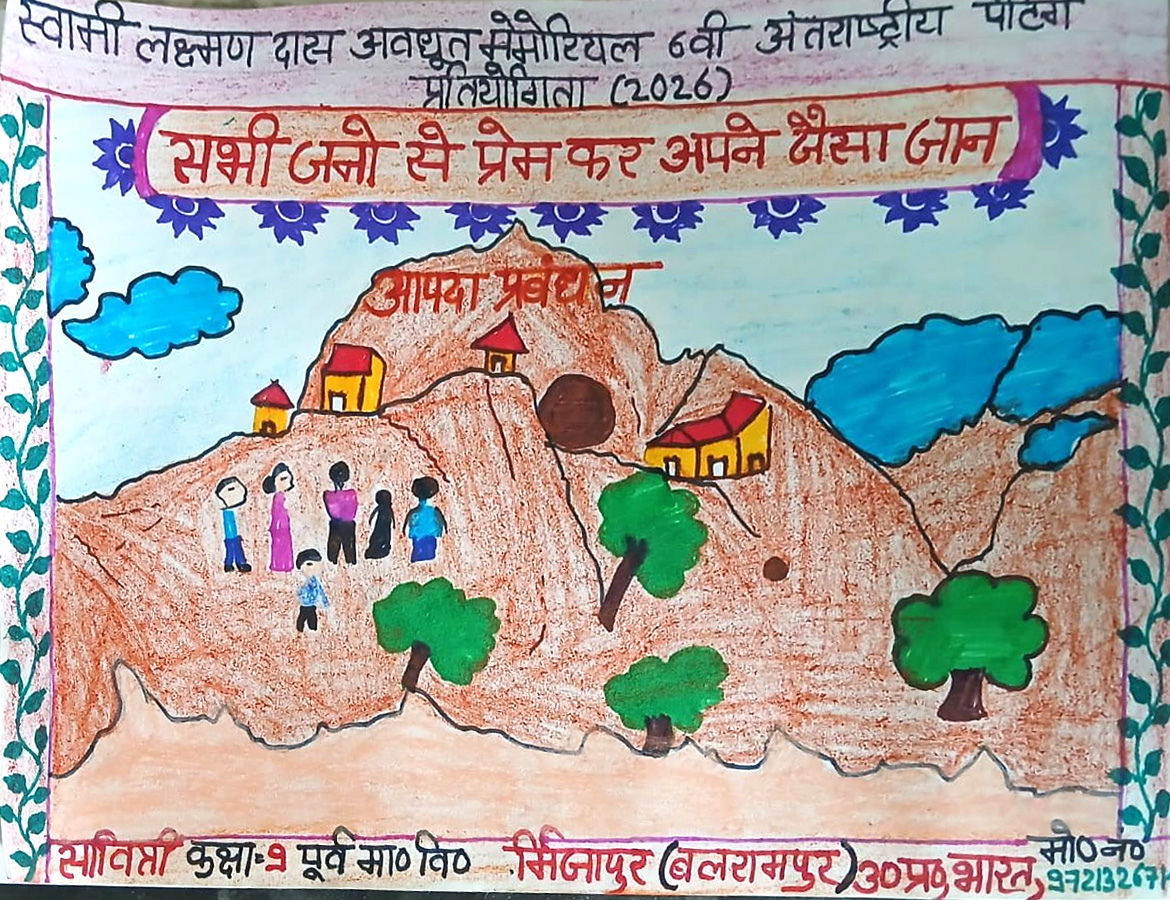 स्वामी लक्ष्मण दास अवधूत मेमोरियल 6वी अंतराष्ट्रीय पेंटिंग
प्रतियोगिता (2026)
सभी जनो से प्रेम कर अपने जैसा जान
आपदा प्रबंधन
सावित्री कक्षा=१ पूर्व मा० वि० मिर्जापुर (बलरामपुर) उ०प्र०, भारत, मो०न०